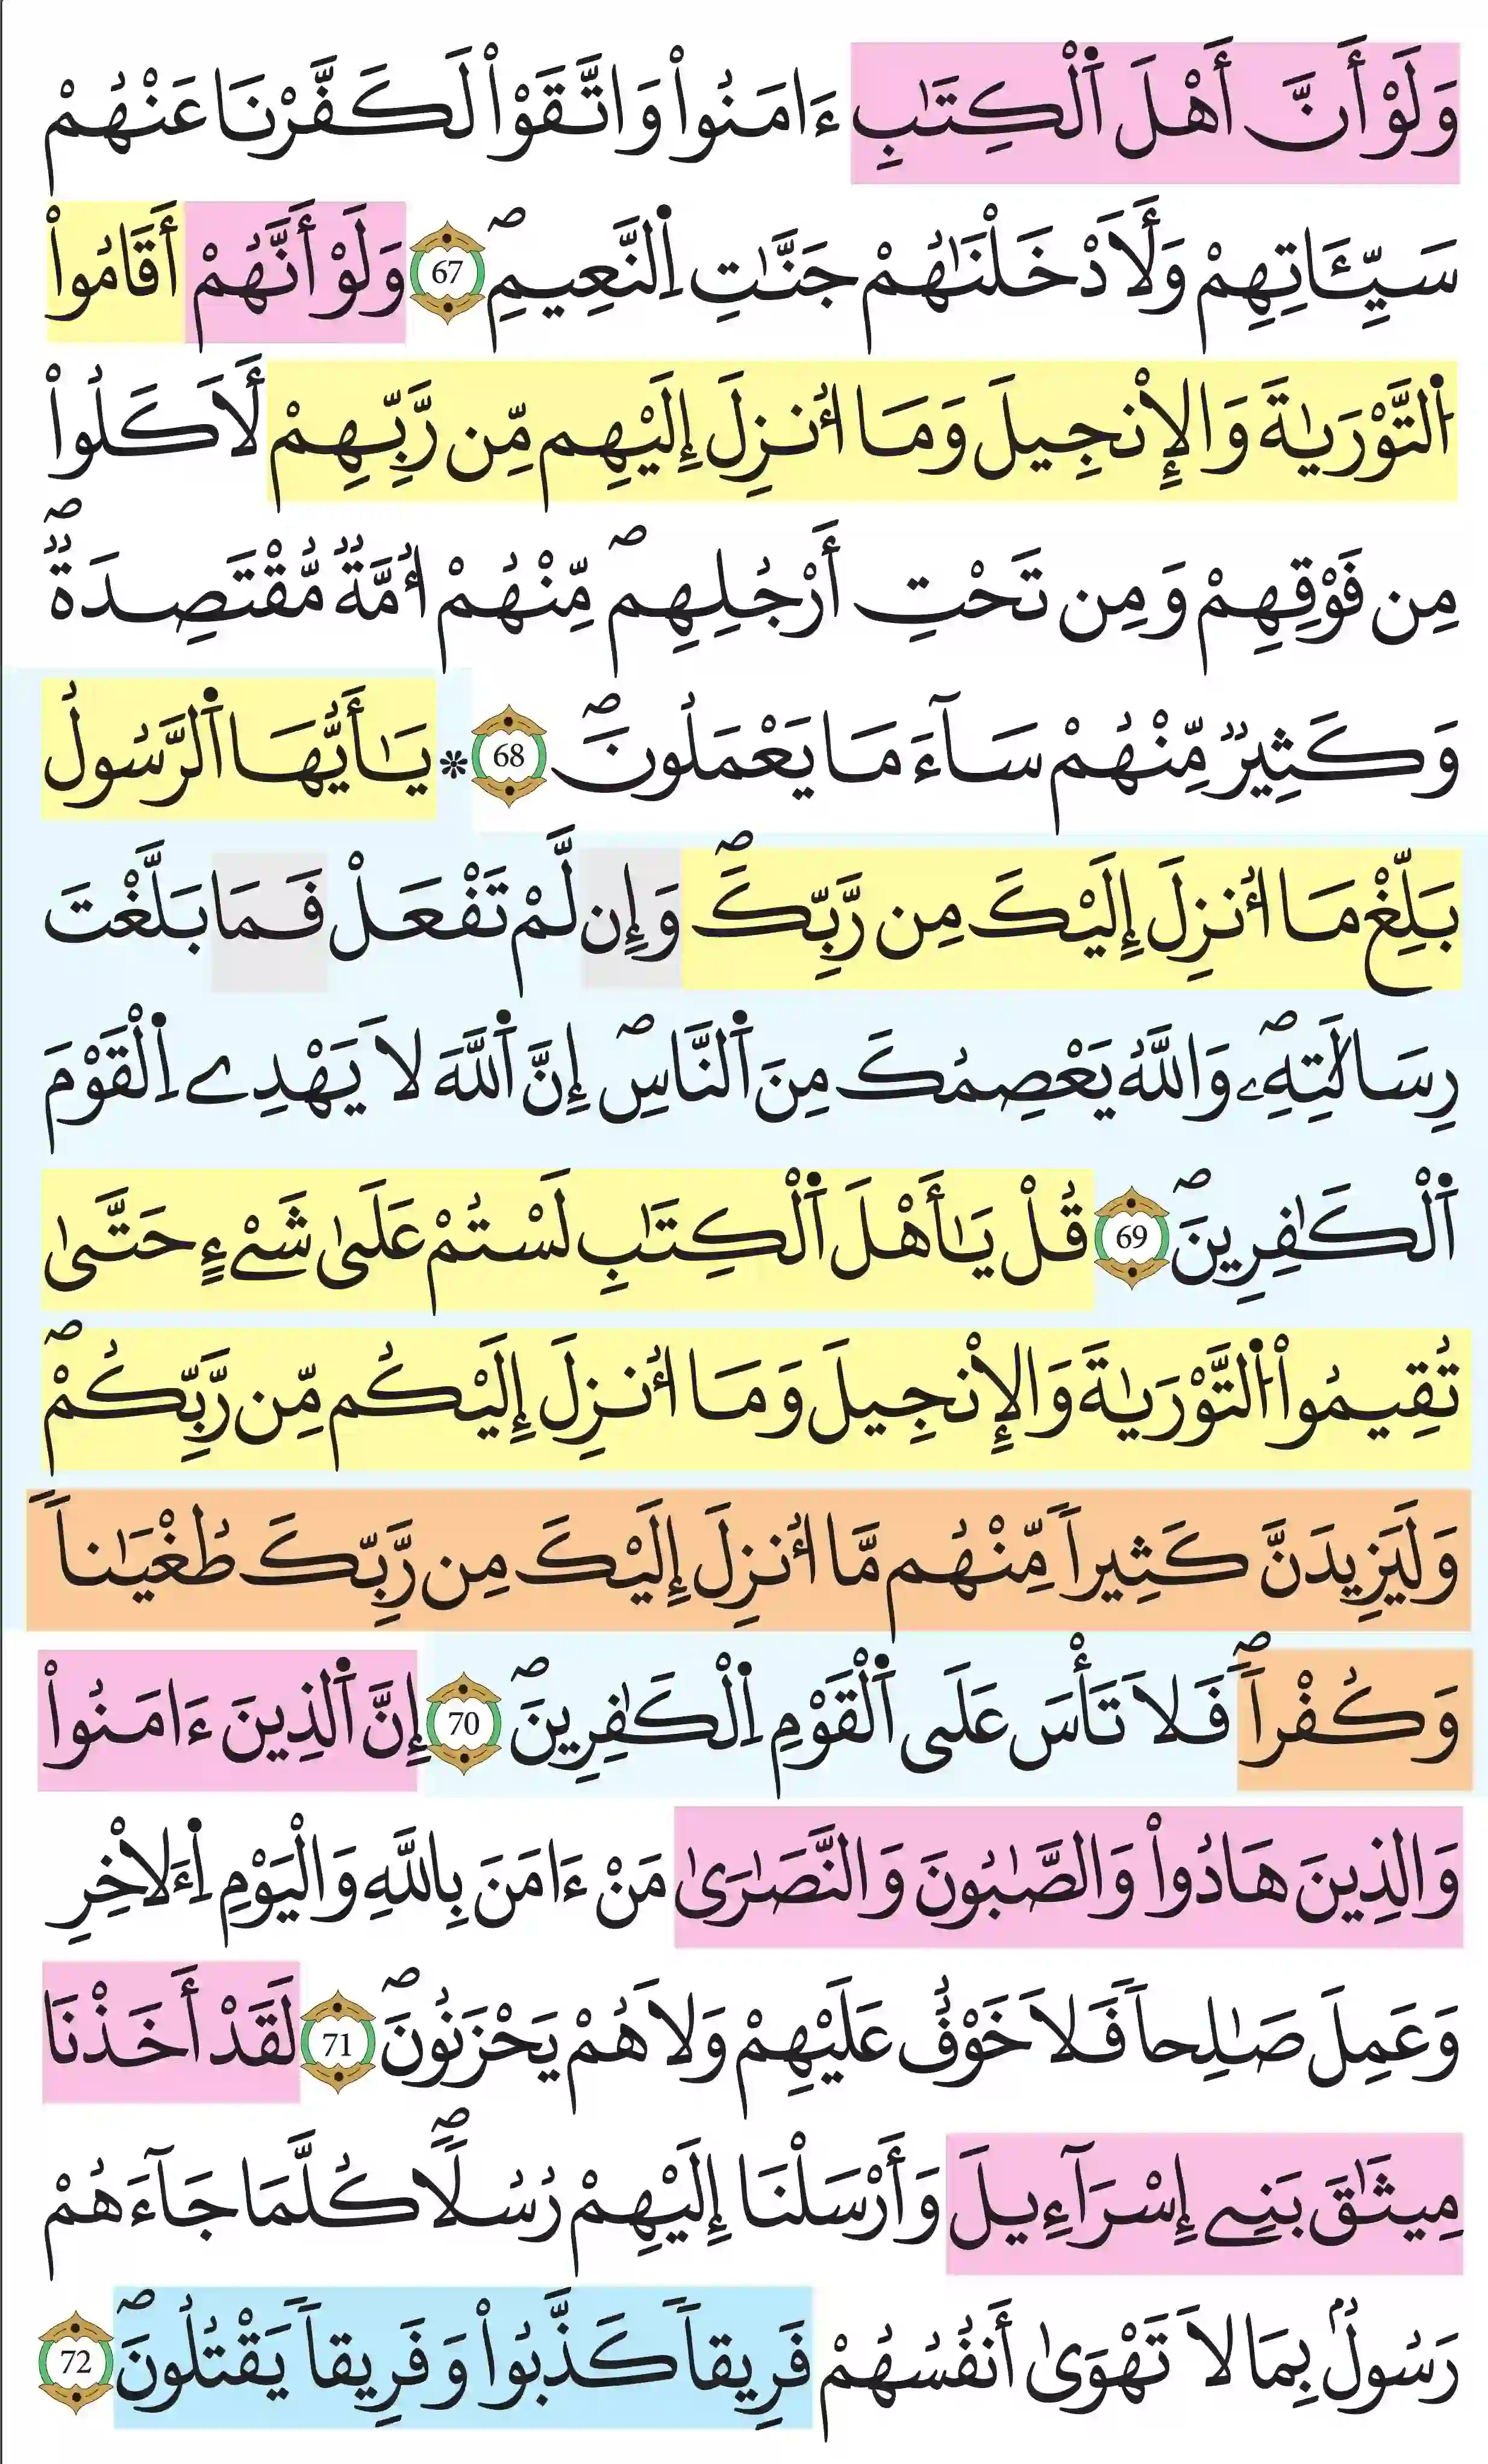 وَلَوْ أَنَّ أَهْلَ اَ۬لْكِتَٰبِ ءَامَنُواْ وَاتَّقَوْاْ لَكَفَّرْنَا عَنْهُمْ
سَيِّـَٔاتِهِمْ وَلَأَدْخَلْنَٰهُمْ جَنَّٰتِ اِ۬لنَّعِيمِۖ 67 وَلَوْ أَنَّهُمْ أَقَامُواْ
اُ۬لتَّوْرَيٰةَ وَالْإِنْجِيلَ وَمَا أُنزِلَ إِلَيْهِم مِّن رَّبِّهِمْ لَأَكَلُواْ
مِن فَوْقِهِمْ وَمِن تَحْتِ أَرْجُلِهِمۖ مِّنْهُمْ أُمَّةٞ مُّقْتَصِدَةٞۖ
وَكَثِيرٞ مِّنْهُمْ سَآءَ مَا يَعْمَلُونَۖ 68 * يَٰأَيُّهَا اَ۬لرَّسُولُ
بَلِّغْ مَا أُنزِلَ إِلَيْكَ مِن رَّبِّكَۖ وَإِن لَّمْ تَفْعَلْ فَمَا بَلَّغْتَ
رِسَالَٰتِهِۦۖ وَاللَّهُ يَعْصِمُكَ مِنَ اَ۬لنَّاسِۖ إِنَّ اَ۬للَّهَ لَا يَهْدِے اِ۬لْقَوْمَ
اَ۬لْكَٰفِرِينَۖ 69 قُلْ يَٰأَهْلَ اَ۬لْكِتَٰبِ لَسْتُمْ عَلَىٰ شَےْءٍ حَتَّىٰ
تُقِيمُواْ اُ۬لتَّوْرَيٰةَ وَالْإِنْجِيلَ وَمَا أُنزِلَ إِلَيْكُم مِّن رَّبِّكُمْۖ
وَلَيَزِيدَنَّ كَثِيراٗ مِّنْهُم مَّا أُنزِلَ إِلَيْكَ مِن رَّبِّكَ طُغْيَٰناٗ
وَكُفْراٗۖ فَلَا تَأْسَ عَلَى اَ۬لْقَوْمِ اِ۬لْكَٰفِرِينَۖ 70 إِنَّ اَ۬لذِينَ ءَامَنُواْ
وَالذِينَ هَادُواْ وَالصَّٰبُونَ وَالنَّصَٰرَىٰ مَنْ ءَامَنَ بِاللَّهِ وَالْيَوْمِ اِ۬لَاخِرِ
وَعَمِلَ صَٰلِحاٗ فَلَا خَوْفٌ عَلَيْهِمْ وَلَا هُمْ يَحْزَنُونَۖ 71 لَقَدْ أَخَذْنَا
مِيثَٰقَ بَنِے إِسْرَآءِيلَ وَأَرْسَلْنَا إِلَيْهِمْ رُسُلاٗۖ كُلَّمَا جَآءَهُمْ
رَسُولُۢ بِمَا لَا تَهْوَىٰ أَنفُسُهُمْ فَرِيقاٗ كَذَّبُواْ وَفَرِيقاٗ يَقْتُلُونَۖ 72